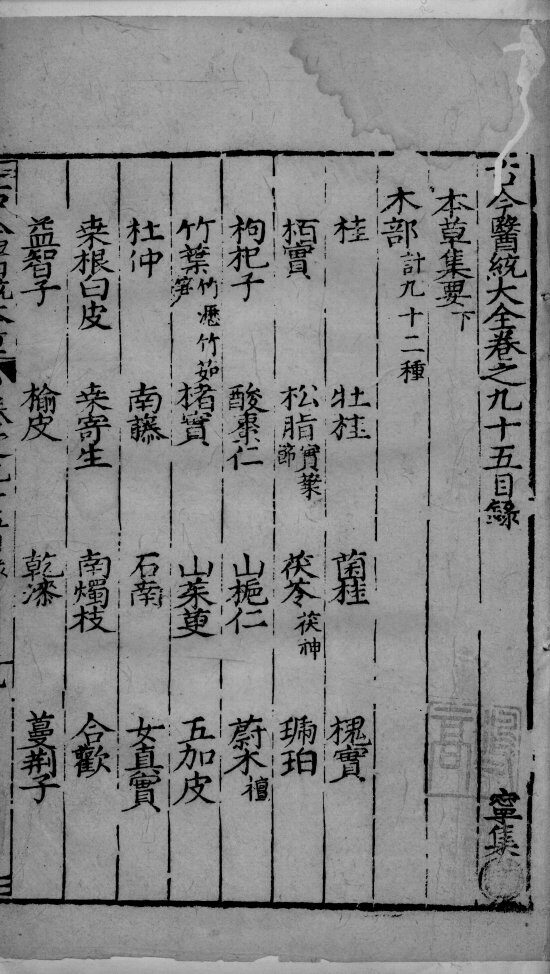 古今醫統大全卷之九十五目錄 寧集
本草集要下
木部計九十二種
桂 牡桂 菌桂 槐實
栢實 松脂實葉節 茯苓茯神 琥珀
枸杞子 酸棗仁 山梔仁 蔚木檀
竹葉竹瀝竹茹 楮實 山茱萸 五加皮
杜仲 南藤 石南 女真實
桒根白皮 桒寄生 南燭枝 合歡
益智子 榆皮 乾漆 蔓荆子